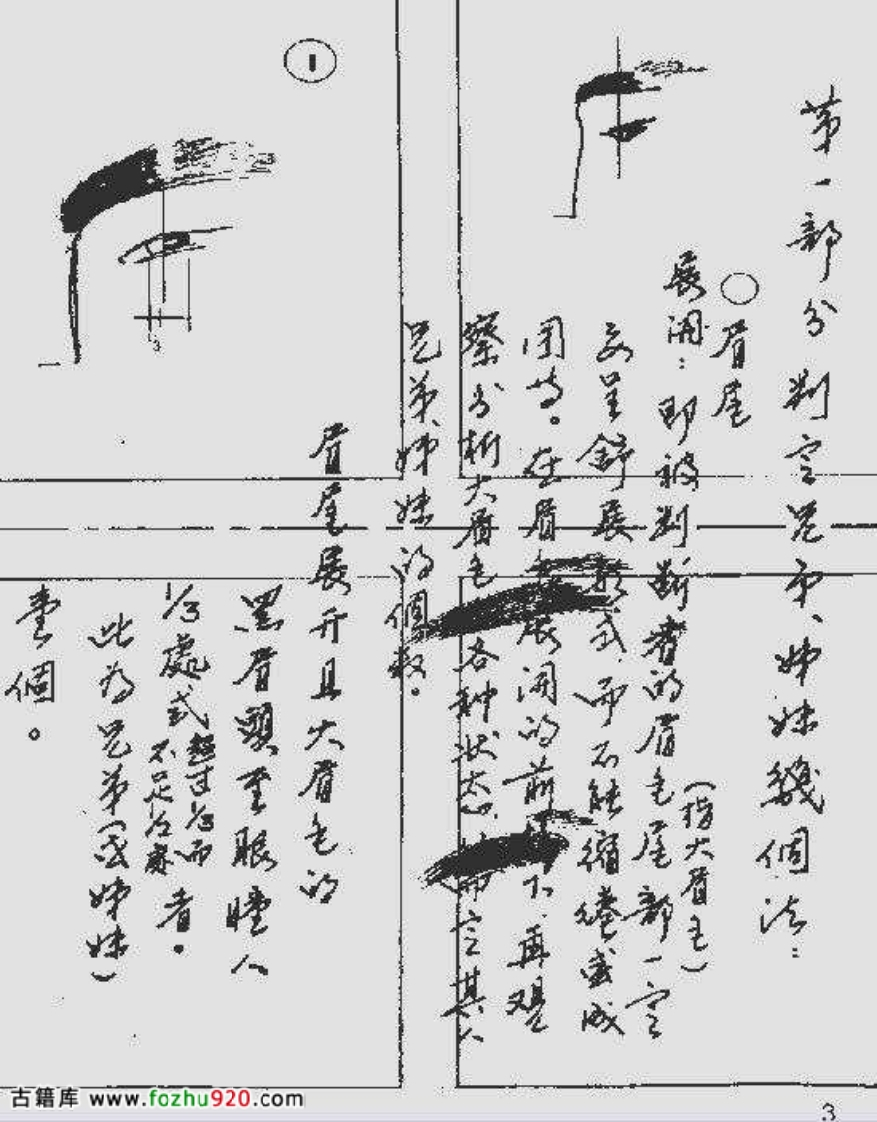 第一部分判定兄弟、姊妹幾個法：
○眉尾
展開：即被判断者的眉毛尾部一定
（指大眉毛）
要呈舒展形式，而不能縮捲或成
團時。在眉毛展開的前提下，再觀
察分析大眉毛各种状态，而定其人
兄弟、姊妹的個數。
1
3
眉尾展开且大眉毛的
黑眉頭至眼瞳人
1/3處或超过1/3而不足1/2處者。
此為兄弟（或姊妹）
壹個。
3
古籍库 www.fozhu920.com